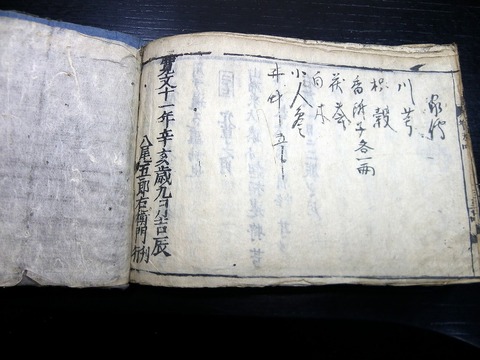 家傳
川芎
枳穀
香附子各一両
茯苓
白朮
小人参
寛文十一年辛亥歳九月吉辰
八尾五郎右衛門刊行